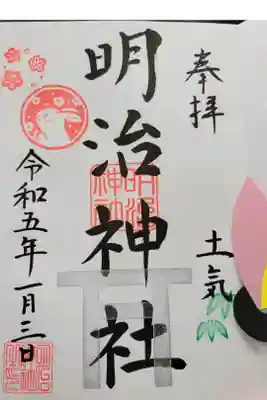 奉拝
土気
明治神社
明治
神社
令和五年一月三日